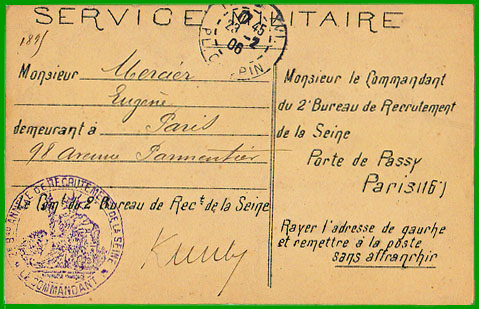 SERVICE MILITAIRE
1895
Monsieur Mercier
Eugène
demeurant à Paris
98 Avenue Parmentier
Le Comt du 2e Bureau de Rect de la Seine
Monsieur le Commandant
du 2e Bureau de Recrutement
de la Seine
Porte de Passy
Paris (16)
Rayer l'adresse de gauche
et remettre à la poste
sans affranchir
45
23 -2
06
PL. C
LE COMMANDANT
DE RECRUTEMENT DE LA SEINE